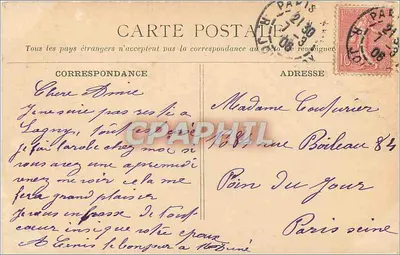 CARTE POSTALE
Tous les pays étrangers n'acceptent pas la correspondance au
CORRESPONDANCE
ADRESSE
PARIS
21 30
06
PARIS
06
Chere Amie
Je ne suis pas resté a
Lagny, tout
chez moi si
vous avez une apremidi
venez me voir cela me
fera grand plaisir
Je vous embrasse de tout
coeur insi que votre epoux
le bonjour a
Madame Couturier
168 rue Boileau 84
Poin du Jour
Paris seine
CPARHIL